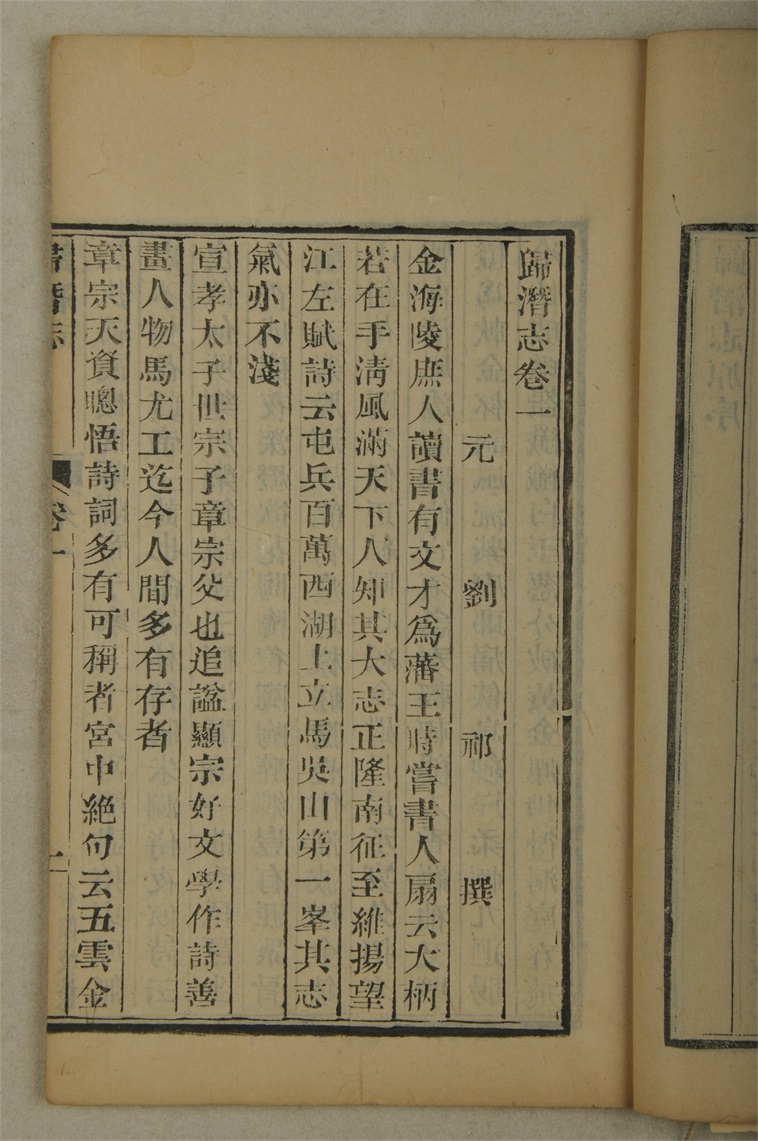 歸潛志卷一
元劉祁撰
金海陵庶人讀書有文才爲藩王時嘗書人扇云大柄
若在手清風滿天下人知其大志正隆南征至維揚望
江左賦詩云屯兵百萬西湖上立馬吳山第一峯其志
氣亦不淺
宣孝太子世宗子章宗父也追諡顯宗好文學作詩善
畫人物馬尤工迄今人間多有存者
章宗天資聰悟詩詞多有可稱者宮中絶句云五雲金
歸潛志
卷一
一